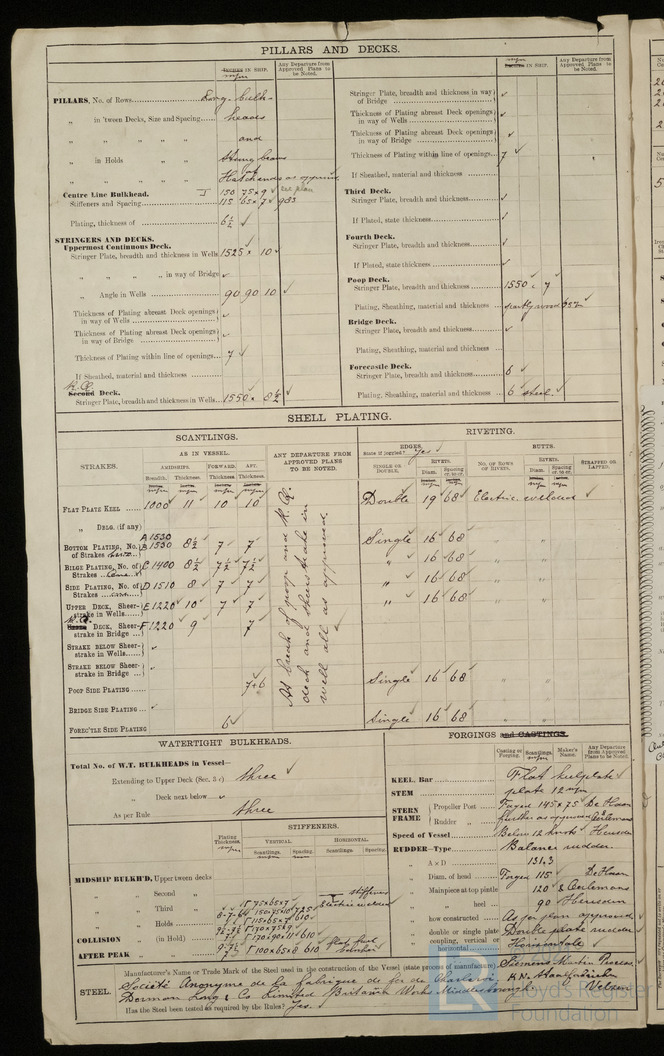 PILLARS AND DECKS.
IN SHIP.
Any Departure from Approved Plans to be Noted.
PILLARS, No. of Rows
„ in 'tween Decks, Size and Spacing
and
„ in Holds
Centre Line Bulkhead.
Stiffeners and Spacing
150 75 × 9 see plan
115 65 × 7 983
Plating, thickness of 6½
STRINGERS AND DECKS.
Uppermost Continuous Deck.
Stringer Plate, breadth and thickness in Wells 1525 × 10
„ „ „ „ in way of Bridge
„ Angle in Wells 90 90 10
Thickness of Plating abreast Deck openings in way of Wells
Thickness of Plating abreast Deck openings in way of Bridge
Thickness of Plating within line of openings 7
If Sheathed, material and thickness
R.Q.
Second Deck.
Stringer Plate, breadth and thickness in Wells 1550 × 8½
IN SHIP.
Any Departure from Approved Plans to be Noted.
Stringer Plate, breadth and thickness in way of Bridge
Thickness of Plating abreast Deck openings in way of Wells
Thickness of Plating abreast Deck openings in way of Bridge
Thickness of Plating within line of openings 7
If Sheathed, material and thickness
Third Deck.
Stringer Plate, breadth and thickness
If Plated, state thickness
Fourth Deck.
Stringer Plate, breadth and thickness
If Plated, state thickness
Poop Deck.
Stringer Plate, breadth and thickness 1550 × 7
Plating, Sheathing, material and thickness partly wood
Bridge Deck.
Stringer Plate, breadth and thickness
Plating, Sheathing, material and thickness
Forecastle Deck.
Stringer Plate, breadth and thickness 6
Plating, Sheathing, material and thickness 6 steel
SHELL PLATING.
SCANTLINGS.
RIVETING.
STRAKES.
AS IN VESSEL.
AMIDSHIPS.
FORWARD.
AFT.
Breadth.
Thickness.
Thickness.
Thickness.
ANY DEPARTURE FROM APPROVED PLANS TO BE NOTED.
EDGES.
State if joggled? Yes
SINGLE OR DOUBLE.
RIVETS.
Diam.
Spacing cr. to cr.
BUTTS.
NO. OF ROWS OF RIVETS.
RIVETS.
Diam.
Spacing cr. to cr.
STRAPPED OR LAPPED.
FLAT PLATE KEEL 1000 11 10 10 Double 19 68 Electric welded
„ DBLG. (if any)
BOTTOM PLATING, No. of Strakes A 1530 B 1530 8½ 7 7 Single 16 68
BILGE PLATING, No. of Strakes C 1400 8½ 7½ 7½ „ 16 68
SIDE PLATING, No. of Strakes D 1510 8 7 7 „ 16 68
UPPER DECK, Sheerstrake in Wells E 1220 10 7 7 „ 16 68
DECK, Sheerstrake in Bridge F 1220 9 7
STRAKE BELOW Sheerstrake in Wells
STRAKE BELOW Sheerstrake in Bridge
POOP SIDE PLATING 7+6 Single 16 68
BRIDGE SIDE PLATING
FORE'TLE SIDE PLATING 6 Single 16 68
At break of poop and R.Q.
deck and sheerstrake in
well all as approved.
WATERTIGHT BULKHEADS.
Total No. of W.T. BULKHEADS in Vessel—
Extending to Upper Deck (Sec. 3 c) three
„ Deck next below
As per Rule three
Plating Thickness.
STIFFENERS.
VERTICAL.
HORIZONTAL.
Scantlings.
Spacing.
Scantlings.
Spacing.
MIDSHIP BULKH'D, Upper 'tween decks
„ Second „
„ Third „
„ Holds
COLLISION „ (in Hold)
AFTER PEAK „ 100×65×8 610
FORGINGS and CASTINGS.
Casting or Forging.
Scantlings.
Maker's Name.
Any Departure from Approved Plans to be Noted.
KEEL, Bar Flat keelplate
STEM plate 12 m/m
STERN FRAME
Propeller Post Forged 145 × 75 De Haan
Rudder „ further as approved & Oerlemans
Speed of Vessel Below 12 knots Heusden
RUDDER—Type Balance rudder
„ A × D 131,3
„ Diam. of head Forged 115 De Haan
„ Mainpiece at top pintle 120 & Oerlemans
„ „ heel 90 Heusden
„ how constructed As per plan approved
„ double or single plate Double plate rudder
„ coupling, vertical or horizontal Horizontale
STEEL.
Manufacturer's Name or Trade Mark of the Steel used in the construction of the Vessel (state process of manufacture) Siemens Martin Process
Société Anonyme de la fabrique de fer de Charleroi
Dorman Long & Co Limited Britannia Works Middlesbrough. Velsen
Has the Steel been tested as required by the Rules? Yes.
Lloyd's Register
Foundation